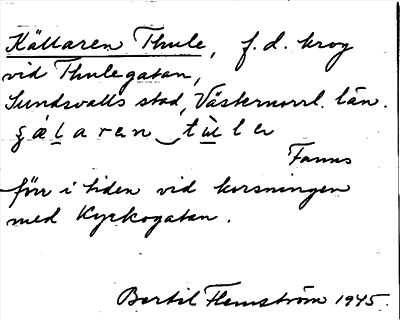 Källaren Thule, f.d. krog
vid Thulegatan,
Sundsvalls stad, Västernorrl. län.
ʂálaren tùler
Fanns
förr i tiden vid korsningen
med Kyrkogatan.
Bertil Flemström 1945.